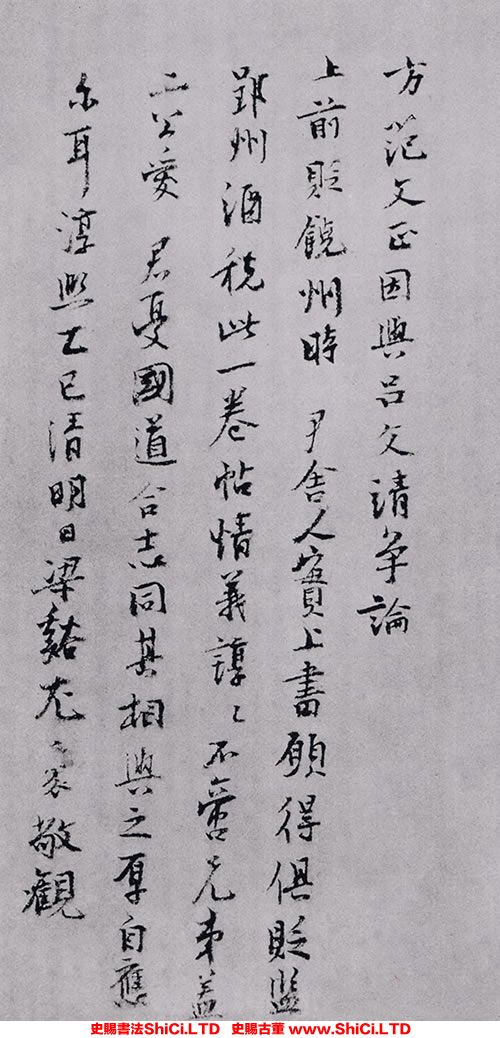 方范文正因與呂文靖争論
上前貶饒州時 尹舍人實上書願得俱貶監
郢州酒税此一卷帖情義諄〻不啻兄弟蓋
二公愛 君憂國道合志同其相與之厚自應
尔耳淳熙乙巳清明日梁谿尤袤敬觀
史賜書法ShiCi.LTD 史賜古董 www.ShiCi.LTD